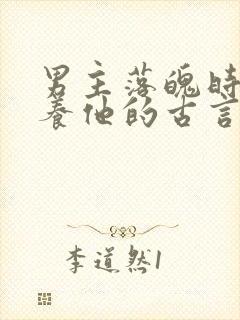 男主落魄时
养他的古言
李道然1